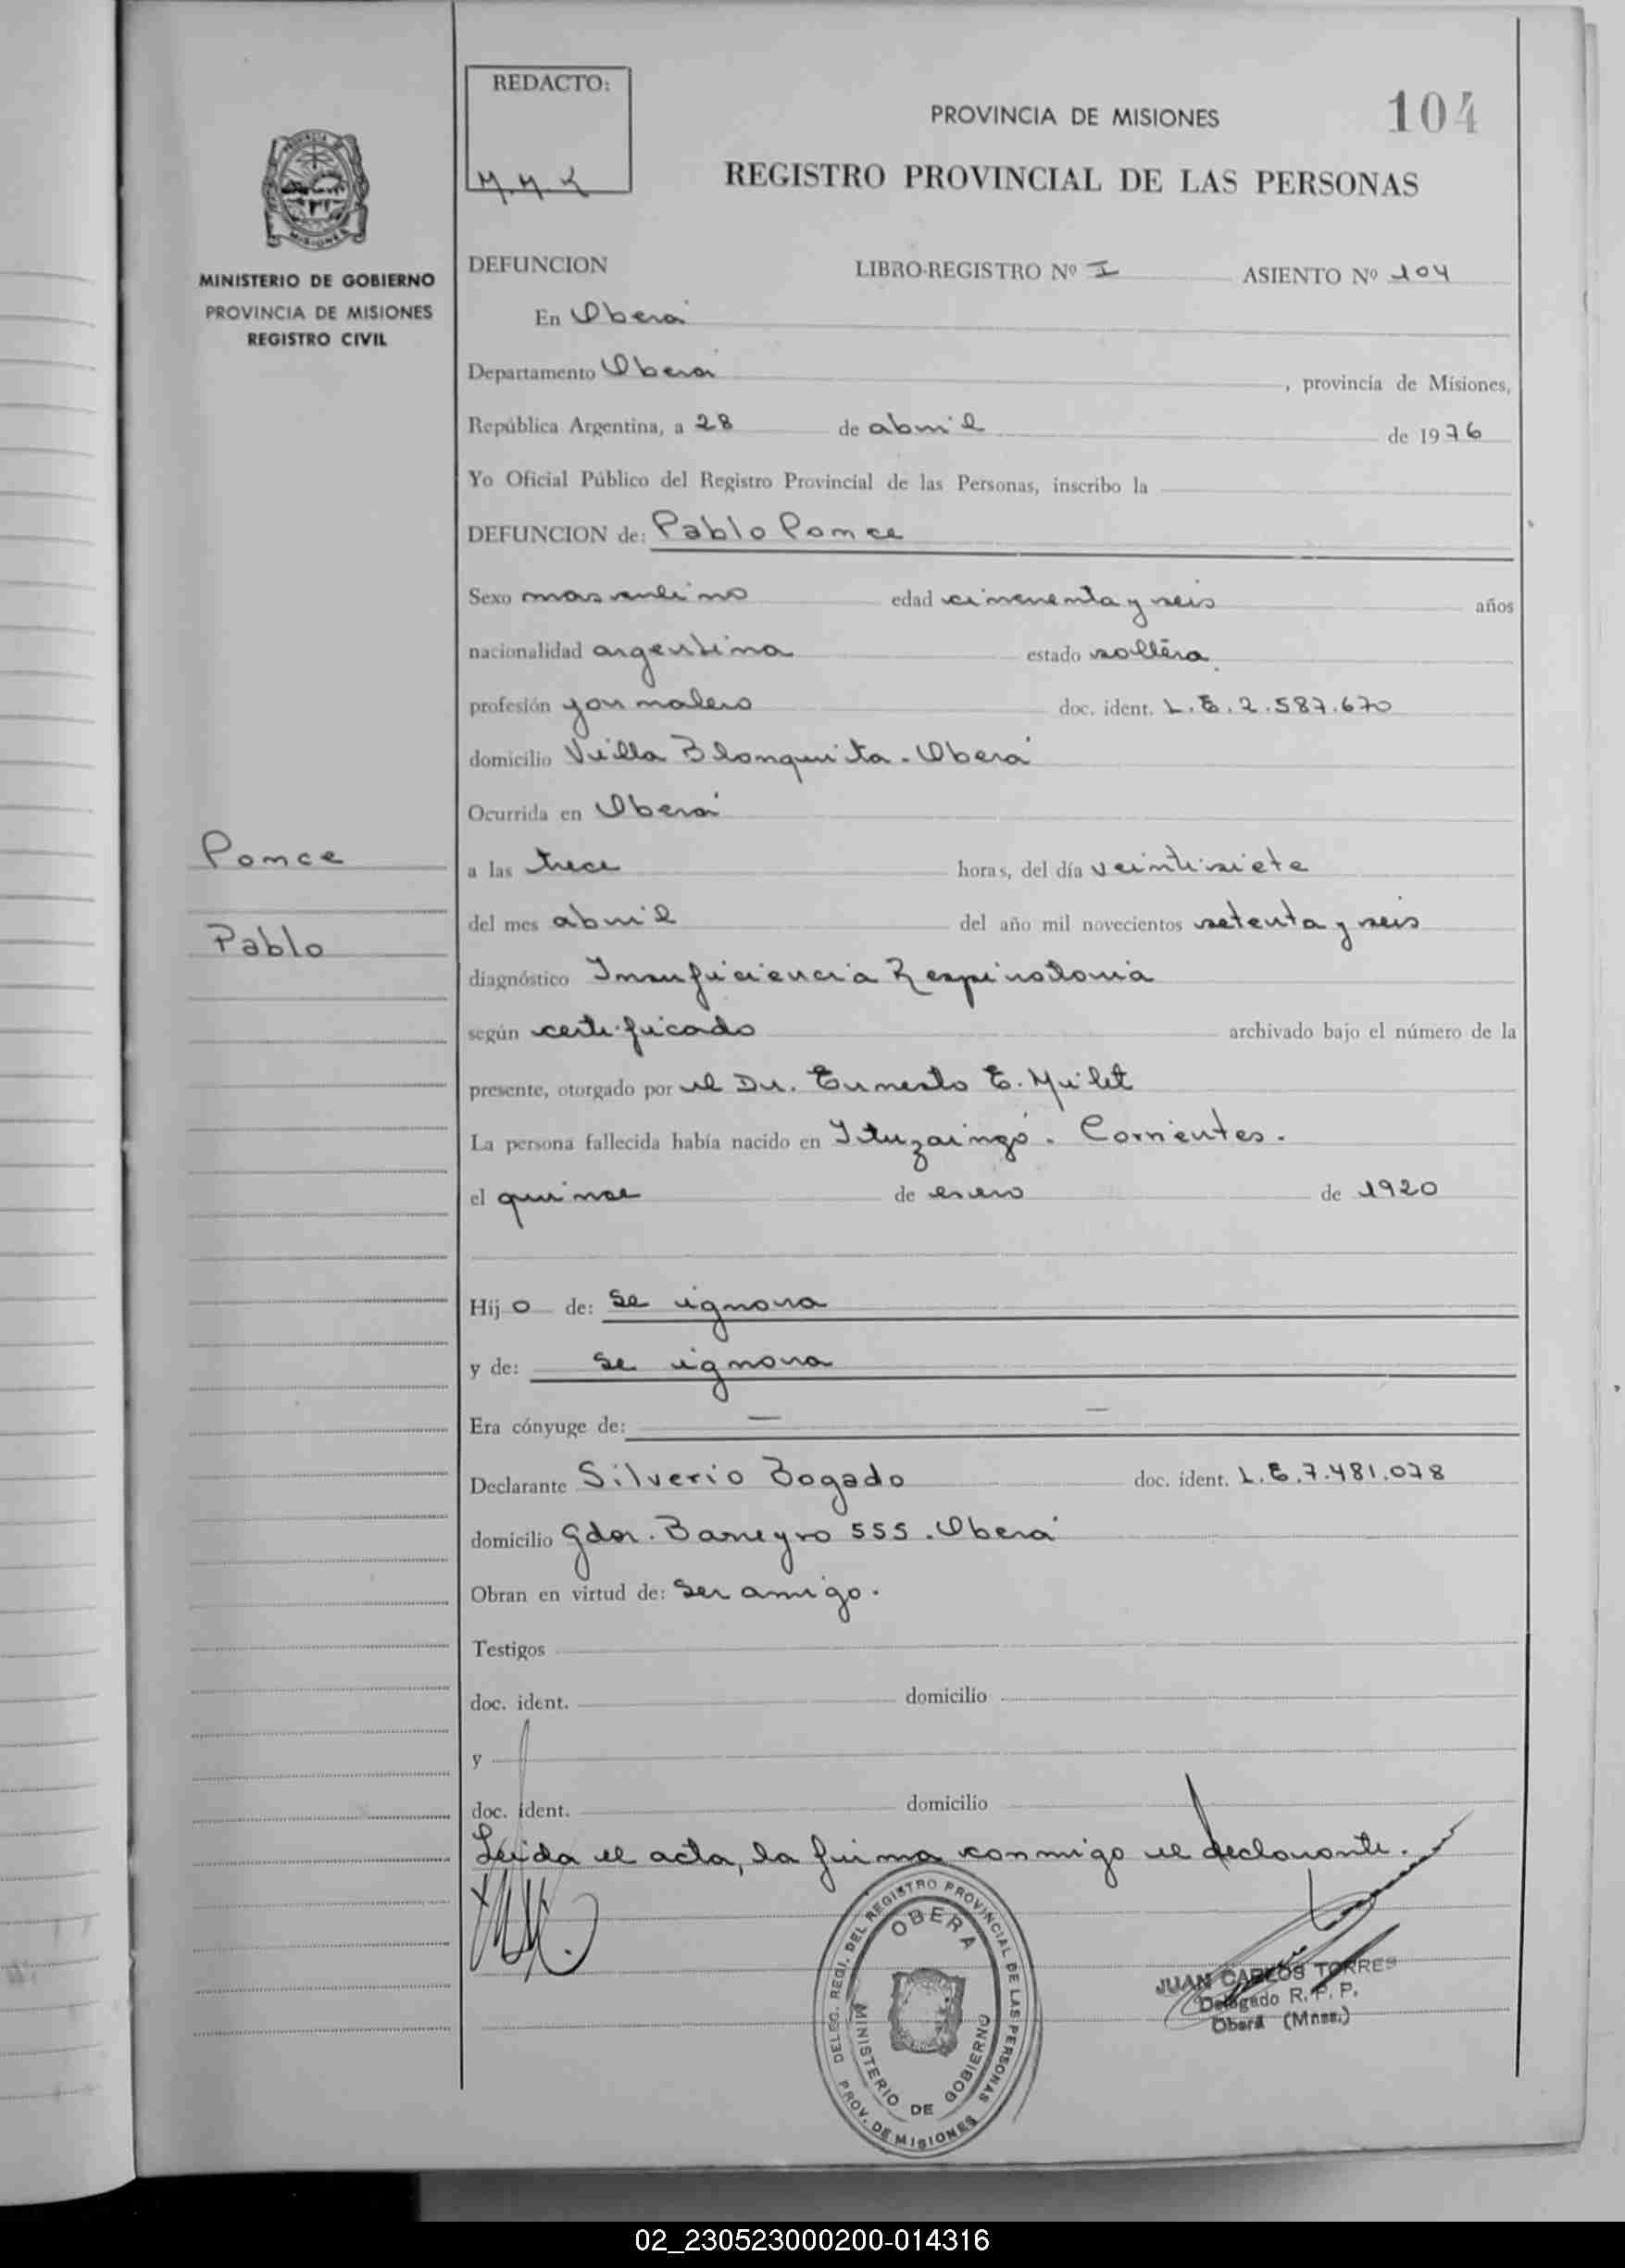 REDACTO:
M.M.K
PROVINCIA DE MISIONES
104
REGISTRO PROVINCIAL DE LAS PERSONAS
MINISTERIO DE GOBIERNO
PROVINCIA DE MISIONES
REGISTRO CIVIL
DEFUNCION LIBRO-REGISTRO Nº I ASIENTO Nº 104
En Oberá
Departamento Oberá, provincia de Misiones,
República Argentina, a 28 de abril de 1976
Yo Oficial Público del Registro Provincial de las Personas, inscribo la
DEFUNCION de: Pablo Ponce
Sexo masculino edad cincuenta y seis años
nacionalidad argentina estado soltero
profesión jornalero doc. ident. L.E.2.587.670
domicilio Villa Blanquita - Oberá
Ocurrida en Oberá
Ponce
Pablo
a las trece horas, del día veintisiete
del mes abril del año mil novecientos setenta y seis
diagnóstico Insuficiencia Respiratoria
según certificado archivado bajo el número de la
presente, otorgado por el Dr. Ernesto E. Milet
La persona fallecida había nacido en Ituzaingó - Corrientes.
el quince de enero de 1920
Hijo de: Se ignora
y de: Se ignora
Era cónyuge de: — —
Declarante Silverio Bogado doc. ident. L.E.7.481.078
domicilio Gdor. Barreyro 555. Oberá
Obran en virtud de: Ser amigo.
Testigos
doc. ident. domicilio
y
doc. ident. domicilio
Leida el acta, la firma conmigo el declarante.
DELEG. REGI. DEL REGISTRO PROVINCIAL DE LAS PERSONAS
OBERA
MINISTERIO DE GOBIERNO
PROV. DE MISIONES
JUAN CARLOS TORRES
Delegado R. P. P.
Oberá (Mnes.)
02_230523000200-014316